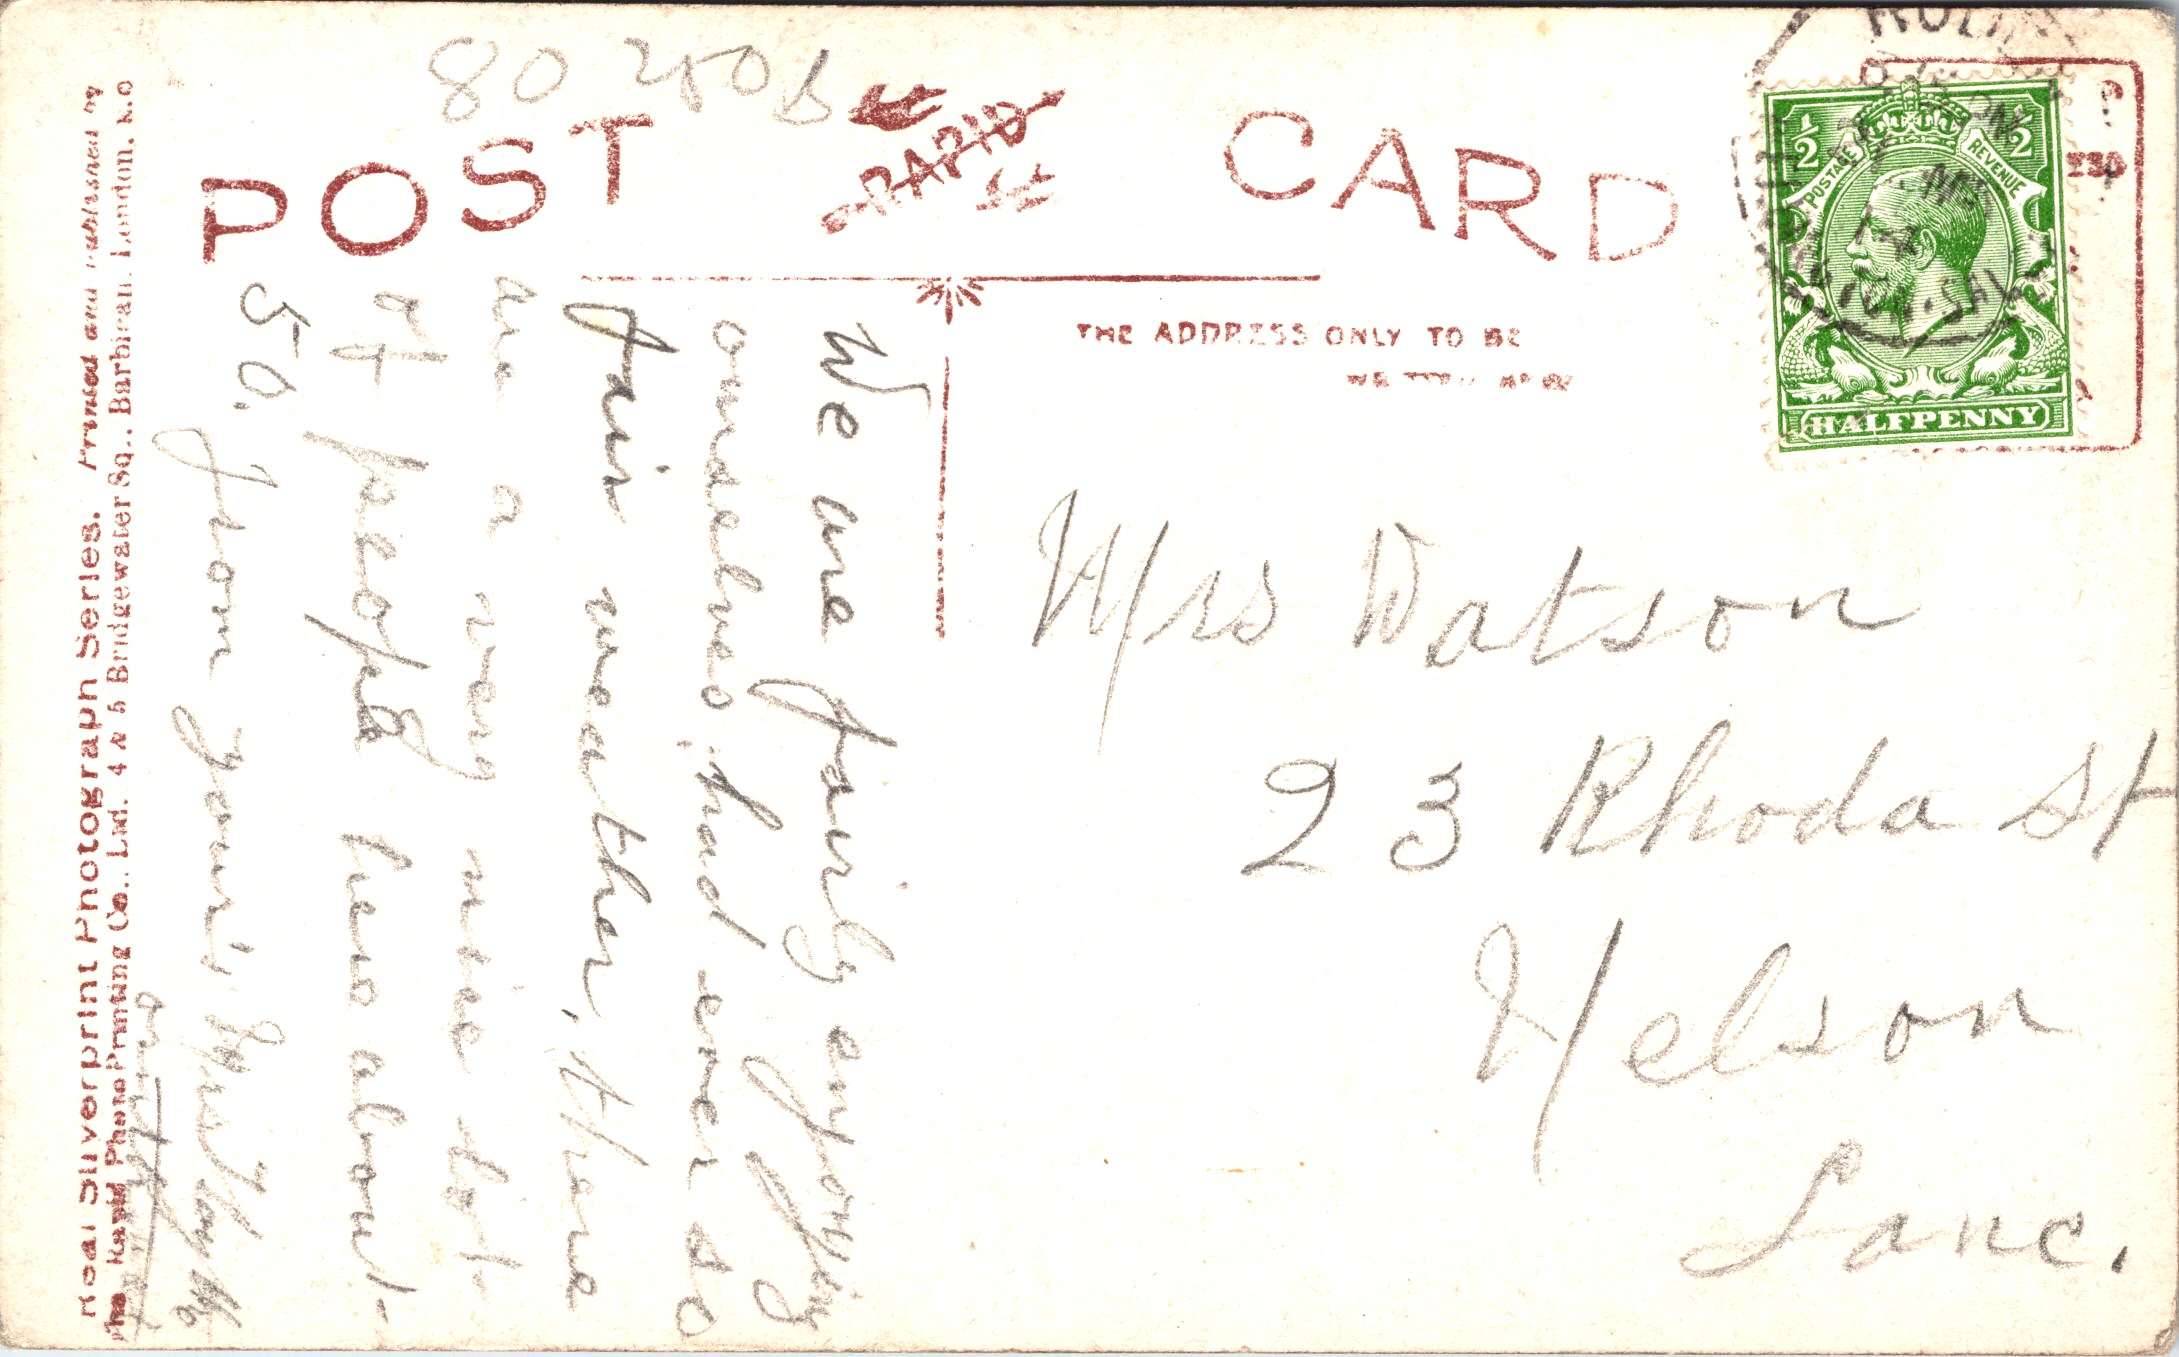 80 250B
POST CARD
RAPID
THE ADDRESS ONLY TO BE
½ ½
POSTAGE REVENUE
HALFPENNY
Mrs Watson
23 Rhoda St
Nelson
Lanc.
We are fairly enjoying
ourselves, had ever so
fair weather, there
are a very nice lot
of people here about
50. from your's Mrs
Real Silverprint Photograph Series. Printed and published by
The Rapid Photo Printing Co., Ltd. 4 & 5 Bridgewater Sq., Barbican, London,